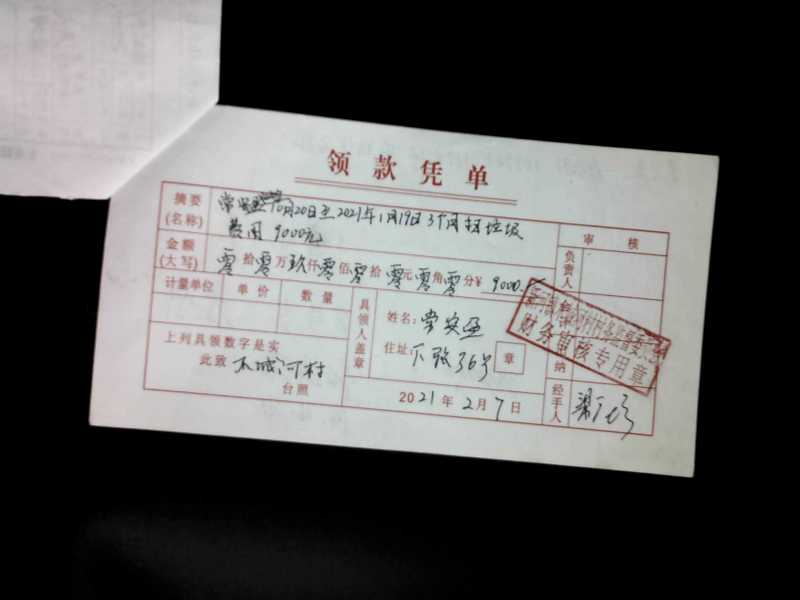 领款凭单
摘要(名称) 10月20日至2021年1月19日3个月 垃圾
费用 9000元
审核
金额(大写) 零拾零万玖仟零佰零拾零元零角零分¥ 9000.
负责人
计量单位 单价 数量
具领人盖章
姓名: 常安
住址: 下张36号 章
上列具领数字是实
此致 木城河村
台照
2021年2月7日
纳
经手人
财务审核专用章